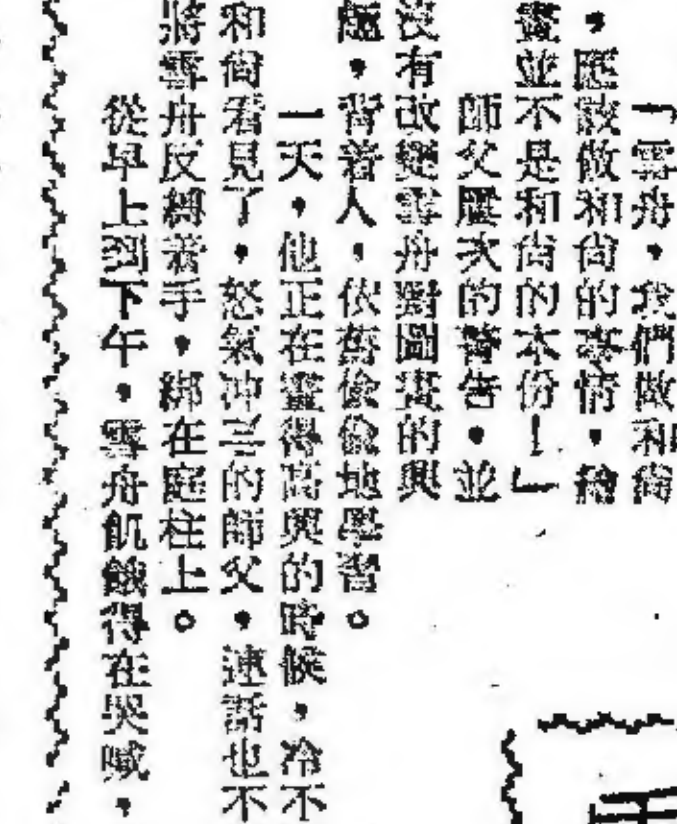 「雲舟,我們做和尚
,應該做和尚的事情,繪
畫並不是和尚的本份!」
師父屢次的警告,並
沒有改變雲舟對圖畫的興
趣,背着人,依舊偷偷地學習。
一天,他正在畫得高興的時候,冷不
和尚看見了,怒氣冲三的師父,連話也不
將雲舟反綁着手,綁在庭柱上。
從早上到下午,雲舟飢餓得在哭喊,